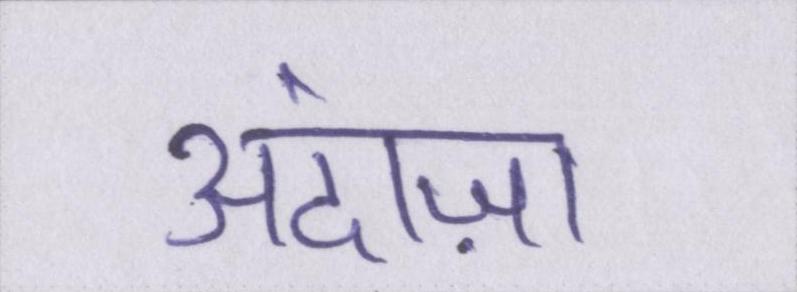 अंदाज़ा